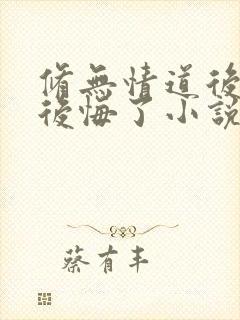 脩無情道後
後悔了小說
蔡有丰